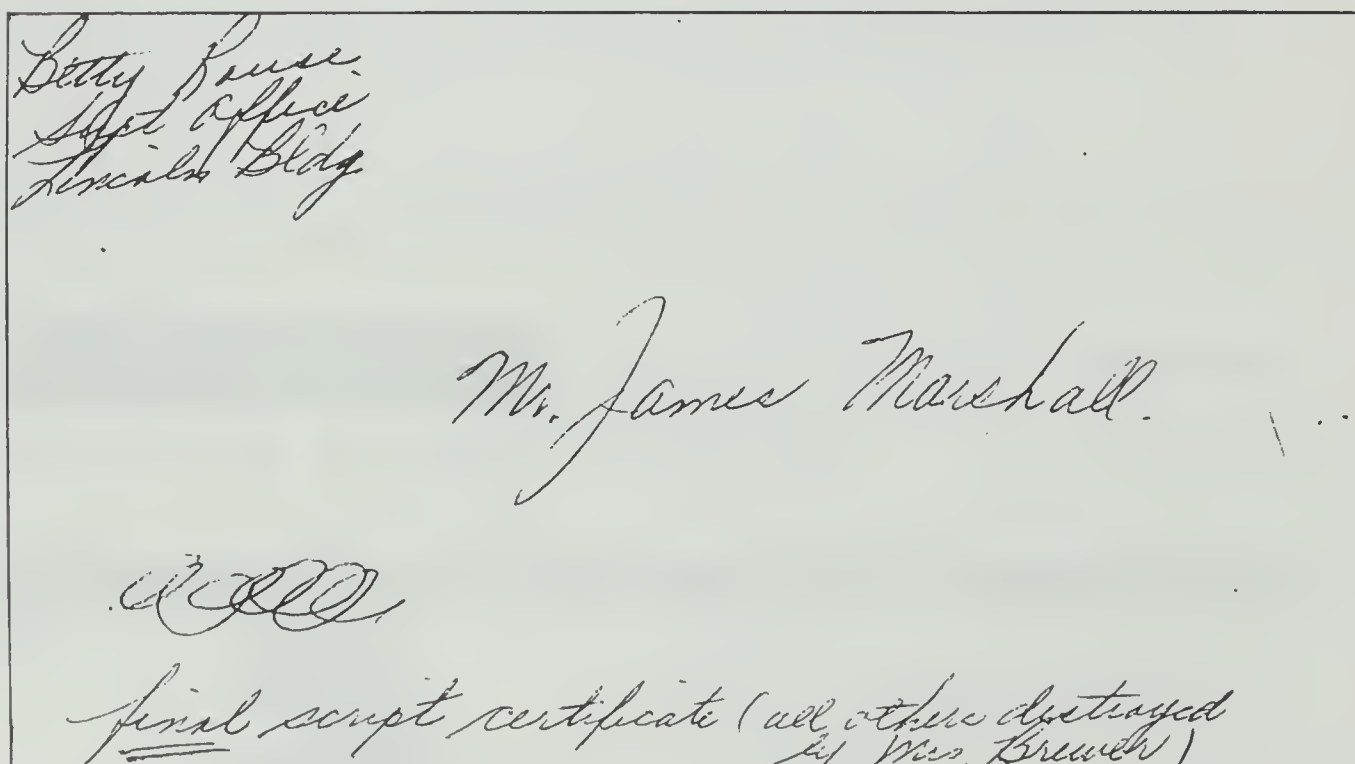 Betty Rouse
Supt Office
Lincoln Bldg.
Mr. James Marshall.
final script certificate (all others destroyed
by Mrs. Brewer)